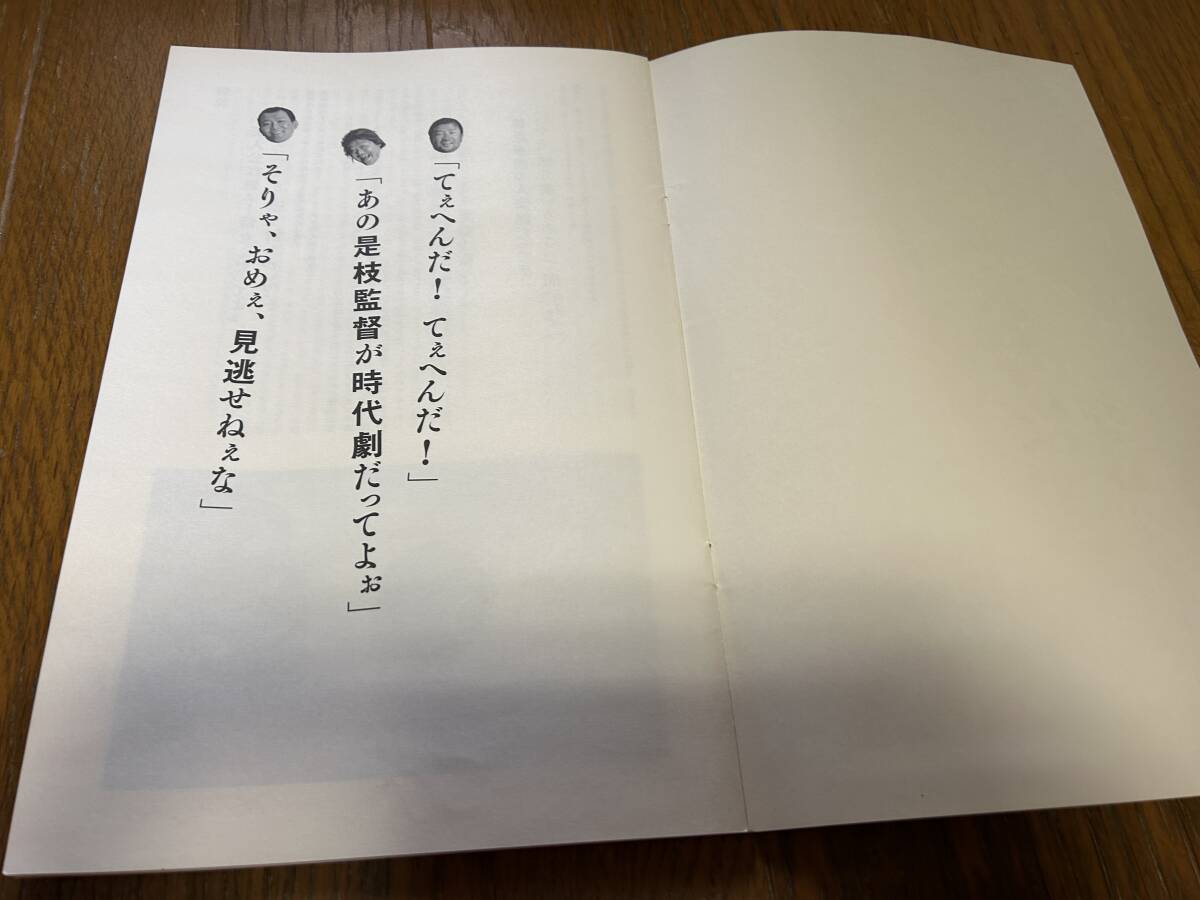 「てぇへんだ！ てぇへんだ！」
「あの是枝監督が時代劇だってよぉ」
「そりゃ、おめぇ、見逃せねぇな」